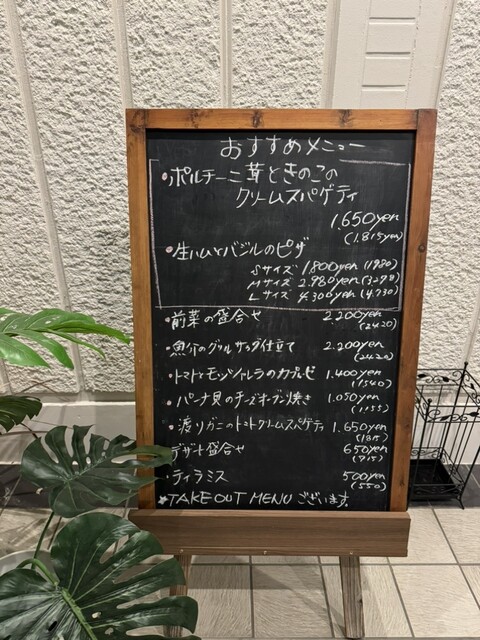 おすすめメニュー
・ポルチーニ茸ときのこの
クリームスパゲティ
1.650yen
(1.815yen)
・生ハムとバジルのピザ
Sサイズ 1.800yen (1980)
Mサイズ 2.980yen (3278)
Lサイズ 4.300yen (4.730)
・前菜の盛合せ 2.200yen
(2420)
・魚介のグリルサラダ仕立て 2.200yen
(2420)
・トマトとモッツァレラのカプレーゼ 1.400yen
(1540)
・パーナ貝のチーズオーブン焼き 1.050yen
(1155)
・渡りガニのトマトクリームスパゲティ 1.650yen
(1815)
デザート盛合せ 650yen
(715)
・ティラミス 500yen
(550)
★TAKE OUT MENU ございます。